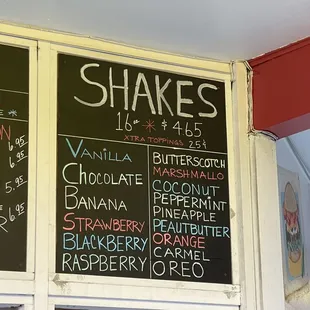 SHAKES
16oz * $465
XTRA TOPPINGS 25¢
VANILLA
CHOCOLATE
BANANA
STRAWBERRY
BLACKBERRY
RASPBERRY
BUTTERSCOTCH
MARSHMALLO
COCONUT
PEPPERMINT
PINEAPPLE
PEAUTBUTTER
ORANGE
CARMEL
OREO
6.95
6.95
5.95
6.95